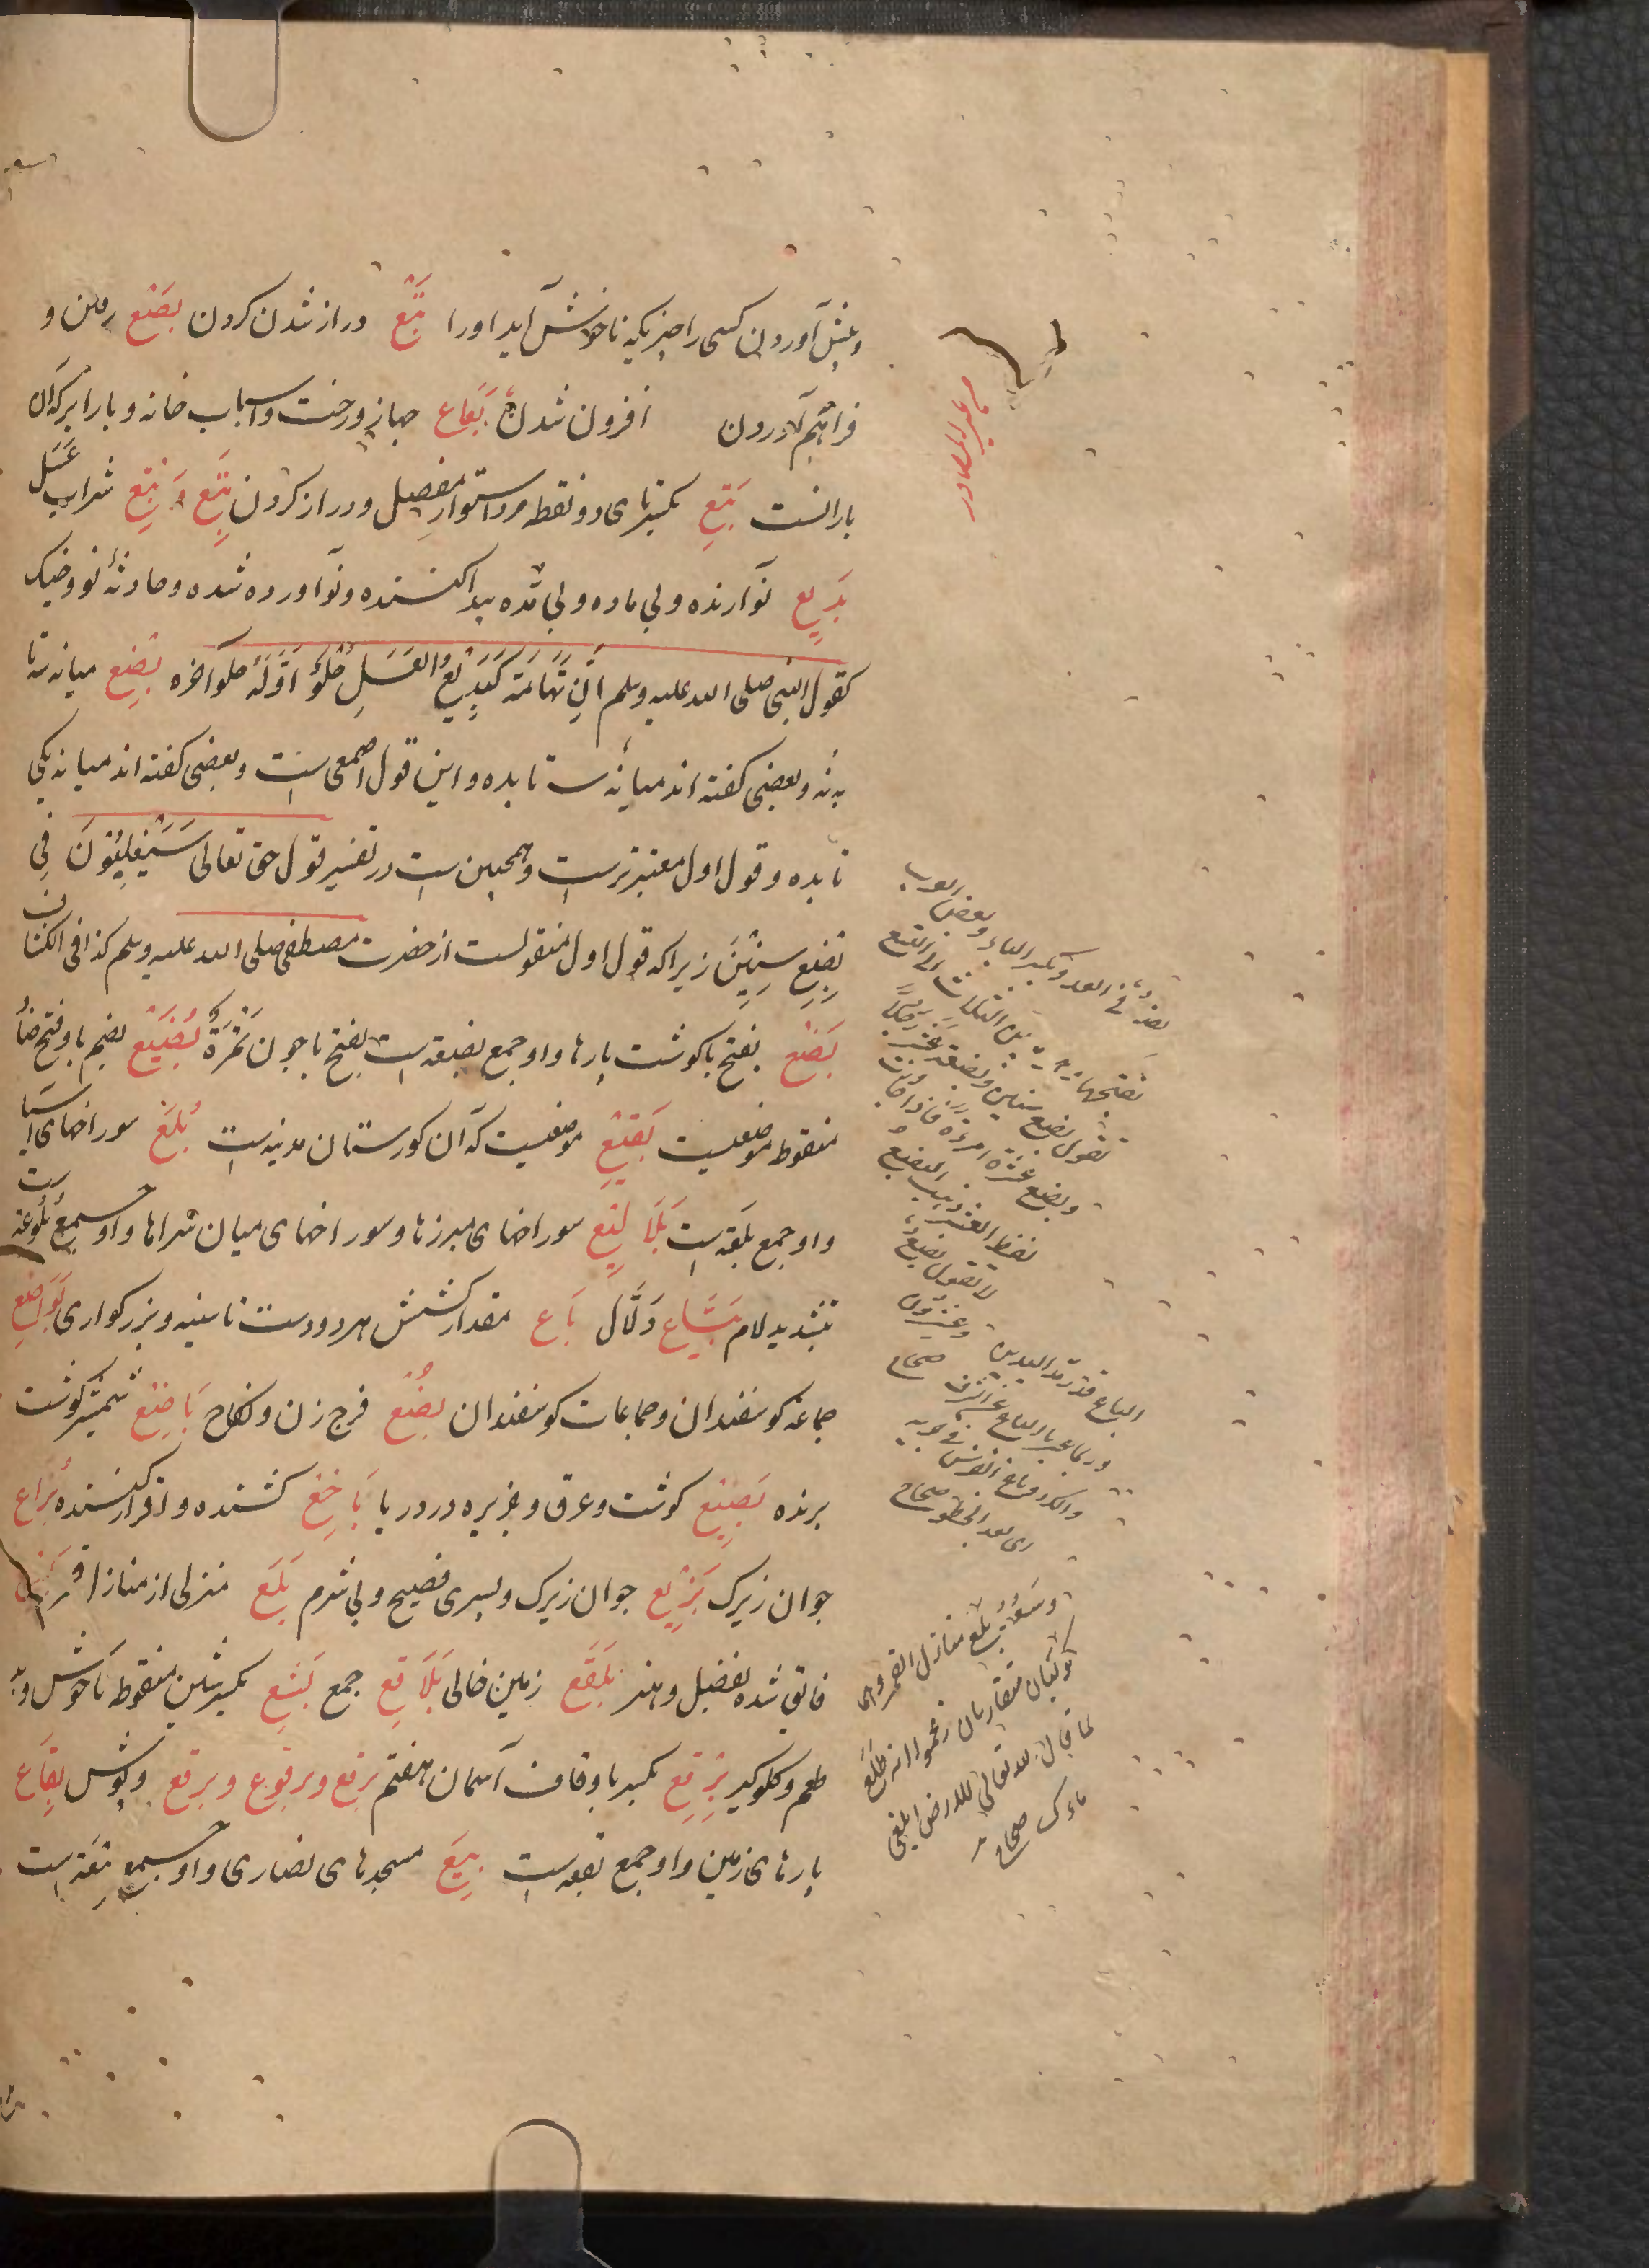 آوردن کسی را چیزیکه ناخوش آید اورا بَتْع دراز شدن کردن بَضْع و
فراهم آوردن افزون شدن بَعَاع جهاز و رخت و اسباب خانه و بار ابر که آن
بارانست بَتِع بکسر تای دو نقطه مرد استوار مفصل و دراز کردن بِتْع وَ بِتَع شراب عسل
بَدِیع نوآرنده و بی ماده و بی مده پیدا کننده و نوآورده شده و حادثهٔ نو و خیک
کقول النبی صلی الله علیه وسلم اَنّ تِهَامَةَ کَبَدِیعِ العَسَلِ حُلْوٌ اَوَّلُهُ حلو آخره بِضع میانه سه تا
به نه و بعضی گفته اند میانه سه تا بده و این قول اصمعی است و بعضی گفته اند میانه یکی
تا بده و قول اول معتبرترست و همچنین ست در تفسیر قول حق تعالی سَیَغْلِبُونَ فِی
بِضْعِ سِنِینَ زیرا که قول اول منقولست از حضرت مصطفی صلی الله علیه وسلم کذا فی الکشاف
بَضْع بفتح با گوشت پارها و او جمع بضعه است بفتح با چون تَمْرَةٌ بُضَیْع بضم با و فتح ضاد
منقوطه موضعیست بَقِیع موضعیست که آن گورستان مدینه است بُلَع سوراخهای آسیا
و او جمع بلعه است بَلَالِیع سوراخهای مبرزها و سوراخهای میان سراها و او جمع بَلُّوعَه ست
بتشدید لام بَیَّاع دَلَّال بَاع مقدار کشش هر دو دست تا سینه و بزرگواری بَوَاضِع
جماعه گوسفندان و جماعات گوسفندان بُضْع فرج زن و نکاح بَاضِع شمشیر گوشت
برنده بَضِیع گوشت و عرق و جزیره در دریا بَاخِع کشنده و اقرار کننده بُزَاع
جوان زیرک بَزِیع جوان زیرک و پسری فصیح و بی شرم بُلَع منزلی از منازل قمر
فائق شده بفضل و هنر بَلْقَع زمین خالی بَلَاقِع جمع بَشِع بکسر شین منقوطه ناخوش و بد
طعم و گلوگیر بِرْقِع بکسر با و قاف آسمان هفتم برقع و برقوع و برقع روپوش بِقَاع
پارهای زمین و او جمع بقعه است بِیَع مسجدهای نصاری و او جمع بِیعَه است
من غیر المصادر
فی العدد بکسر الباء و بعض العرب
یفتحها ما بین الثلاث الی التسع
تقول بضع سنین و بضعة عشر رجلا
و بضع عشرة امرأة فاذا جاوزت
لفظ العشر ذهب البضع
لا تقول بضع
و عشرون
الباع قدر مد الیدین صحاح
و ربما عبر بالباع عن الشرف
و سعد بلع منازل القمر و هما
کوکبان متقاربان زعموا انه طلع
لما قال الله تعالی للارض ابلعی
ماءک صحاح